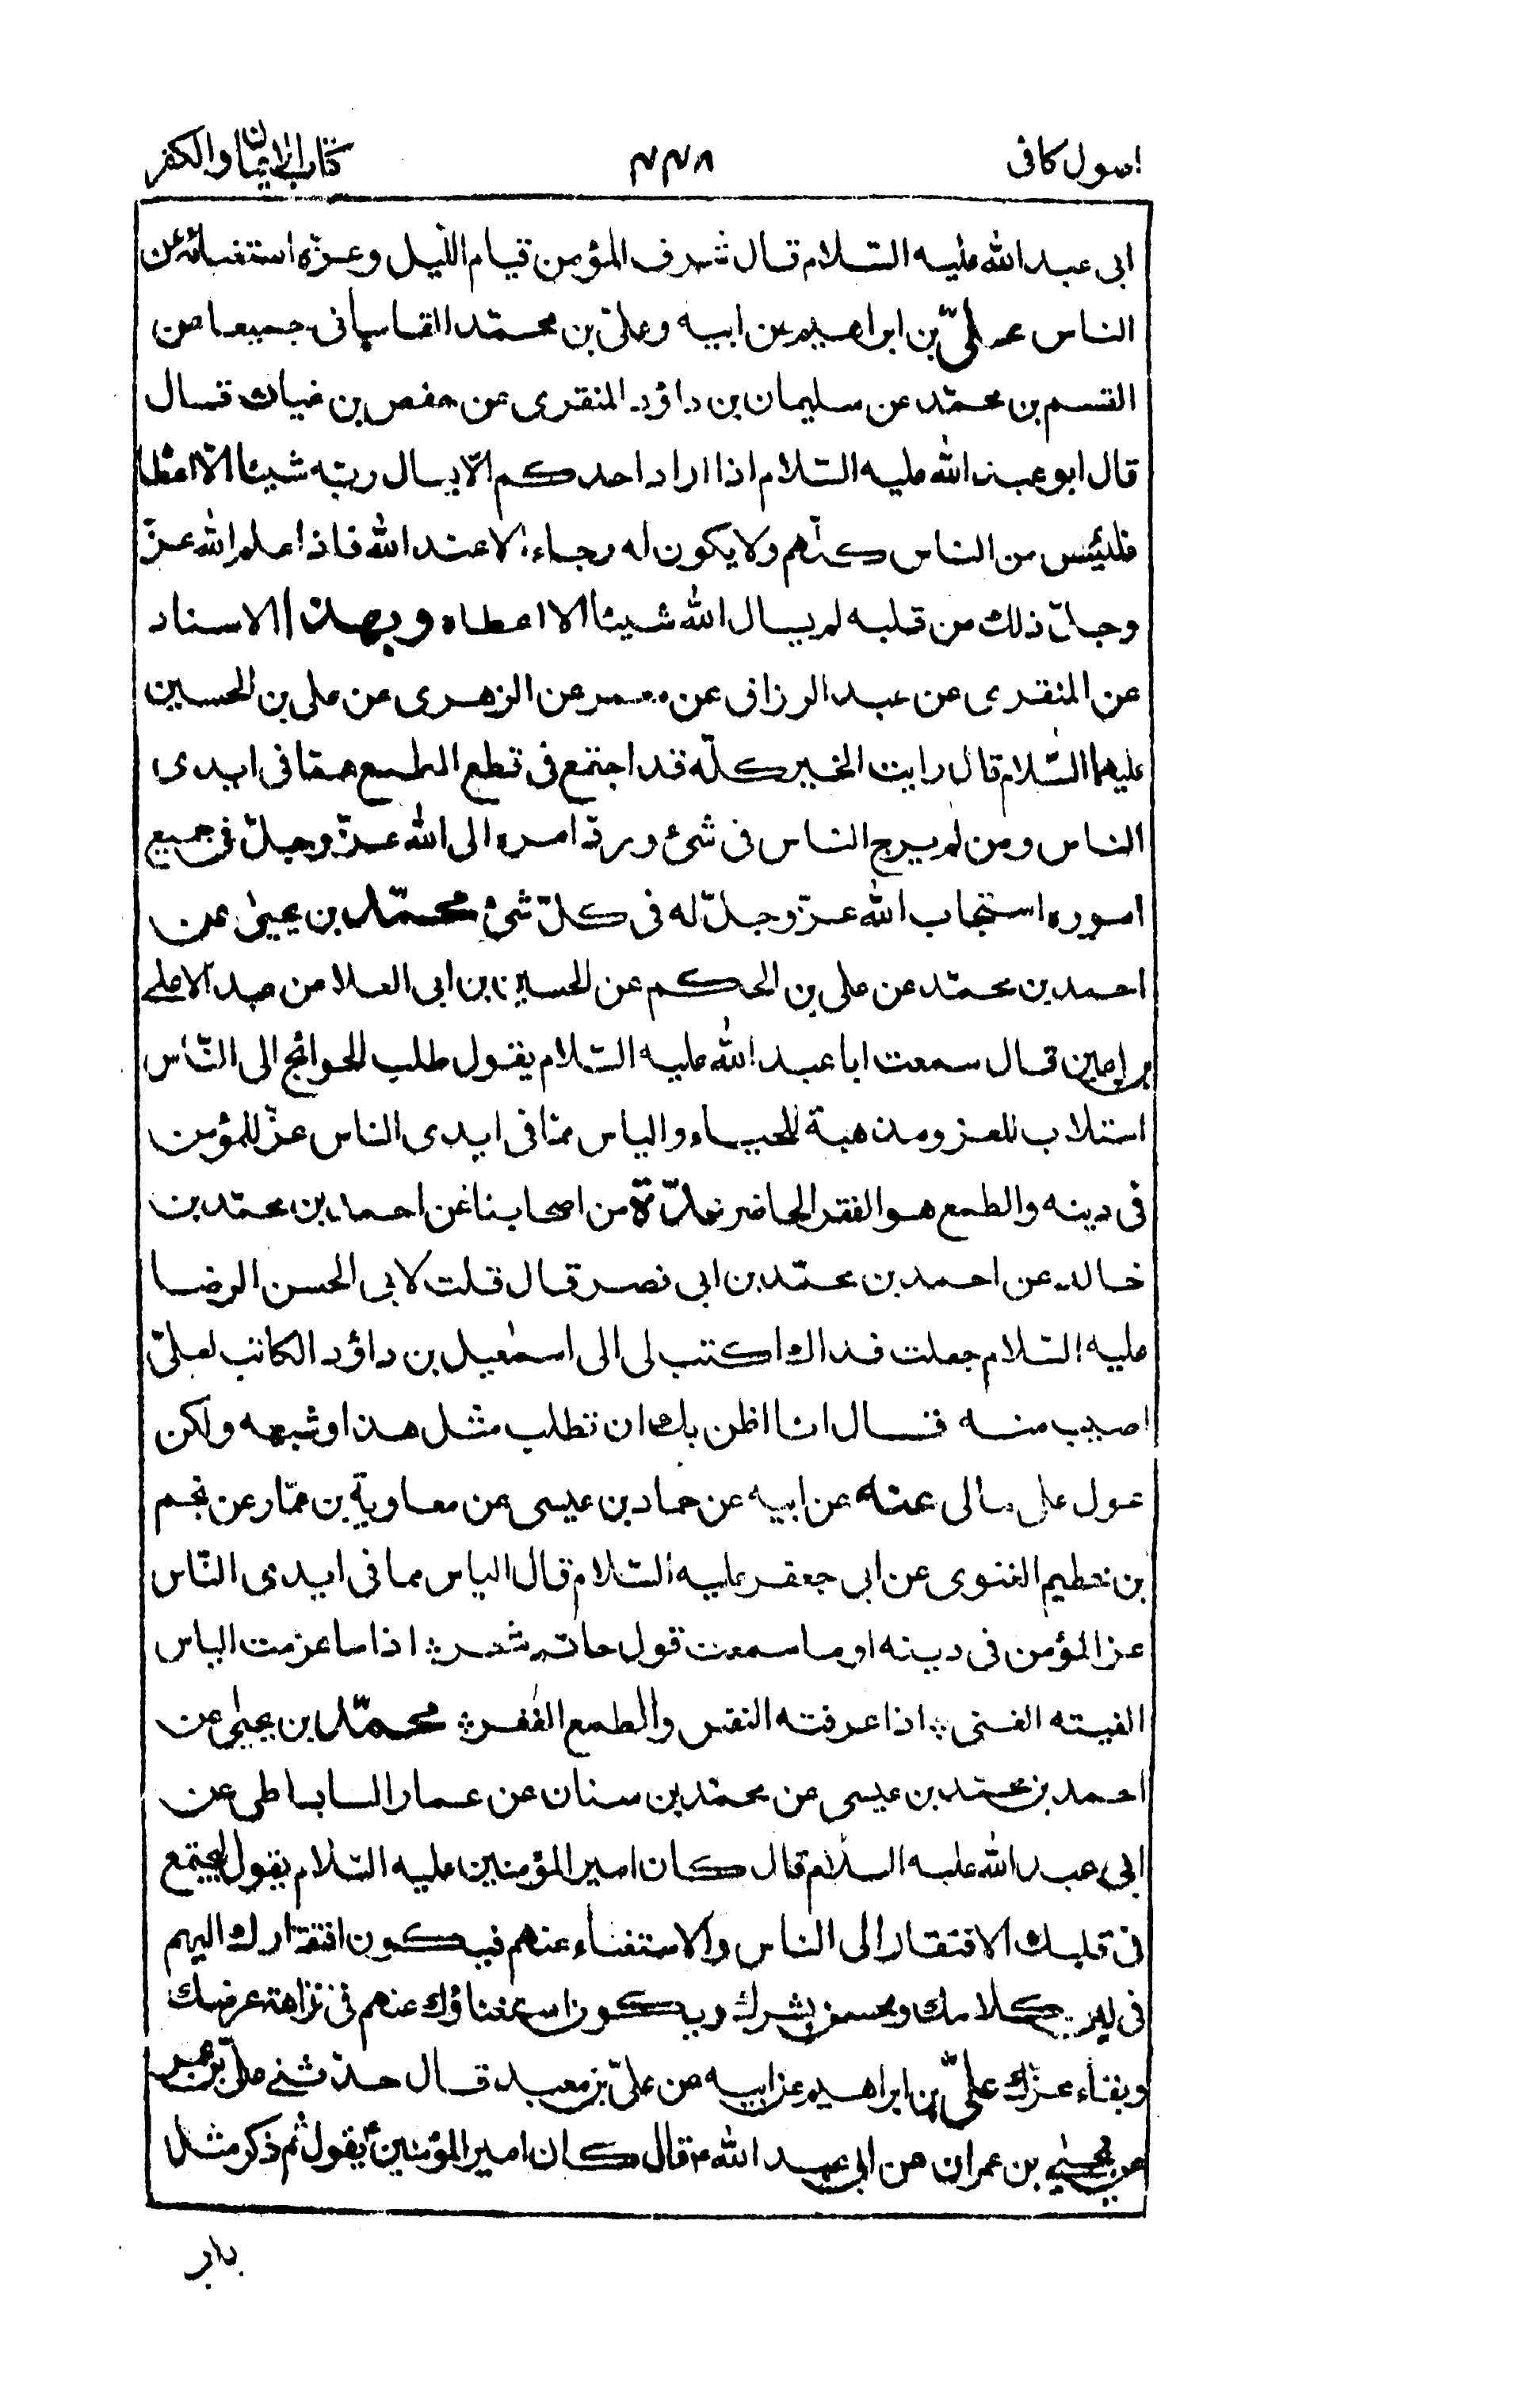 اصول كافى ٣٣٨ كتاب الايمان والكفر
ابى عبد الله عليه السّلام قال شرف المؤمن قيام اللّيل وعزّه استغناؤه عن
الناس علىّ بن ابراهيم عن ابيه وعلىّ بن محمّد القاسانى جميعا عن
القسم بن محمّد عن سليمان بن داؤد المنقرى عن حفص بن غياث قال
قال ابو عبد الله عليه السّلام اذا اراد احدكم الّا يسال ربّه شيئا الّا اعطا
فلييئس من الناس كلّهم ولا يكون له رجاء الا عند الله فاذا علم الله عزّ
وجلّ ذلك من قلبه لم يسال الله شيئا الا اعطاه وبهذا الاسناد
عن المنقرى عن عبد الرزاق عن معمر عن الزهرى عن على بن الحسين
عليهما السّلام قال رايت الخير كلّه قد اجتمع فى قطع الطمع عمّا فى ايدى
الناس ومن لم يرج الناس فى شئ وردّ امره الى الله عزّ وجلّ فى جميع
اموره استجاب الله عزّ وجلّ له فى كلّ شئ محمّد بن يحيى عن
احمد بن محمّد عن على بن الحكم عن الحسين بن ابى العلا عن عبد الاعلى
بن اعين قال سمعت ابا عبد الله عليه السّلام يقول طلب الحوائج الى النّاس
استلاب للعز ومذهبة للحياء والياس ممّا فى ايدى الناس عزّ للمؤمن
فى دينه والطمع هو الفقر الحاضر عدّة من اصحابنا عن احمد بن محمّد بن
خالد عن احمد بن محمّد بن ابى نصر قال قلت لابى الحسن الرضا
عليه السّلام جعلت فداك اكتب لى الى اسمٰعيل بن داؤد الكاتب لعلىّ
اصيب منه قال انا اظن بك ان تطلب مثل هذا وشبهه ولكن
عول على مالى عنه عن ابيه عن حماد بن عيسى عن معاوية بن عمّار عن نجم
بن حطيم الغنوى عن ابى جعفر عليه السّلام قال الياس مما فى ايدى النّاس
عز المؤمن فى دينه اوما سمعت قول حاتم شعر اذا ما عزمت الياس
الفيته الغنى اذا عرفته النفس والطمع الفقر محمّد بن يحيٰى عن
احمد بن محمّد بن عيسى عن محمّد بن سنان عن عمار الساباطى عن
ابى عبد الله عليه السلام قال كان امير المؤمنين عليه السّلام يقول ليجتمع
فى قلبك الافتقار الى الناس والاستغناء عنهم فيكون افتقارك اليهم
فى لين كلامك وحسن بشرك ويكون استغناؤك عنهم فى نزاهة عرضك
وبقاء عزّك علىّ بن ابراهيم عن ابيه عن علىّ بن معبد قال حدّثنى علىّ بن عمر
عن يحيى بن عمران عن ابى عبد الله ع قال كان امير المؤمنينؑ يقول ثم ذكر مثل
باب